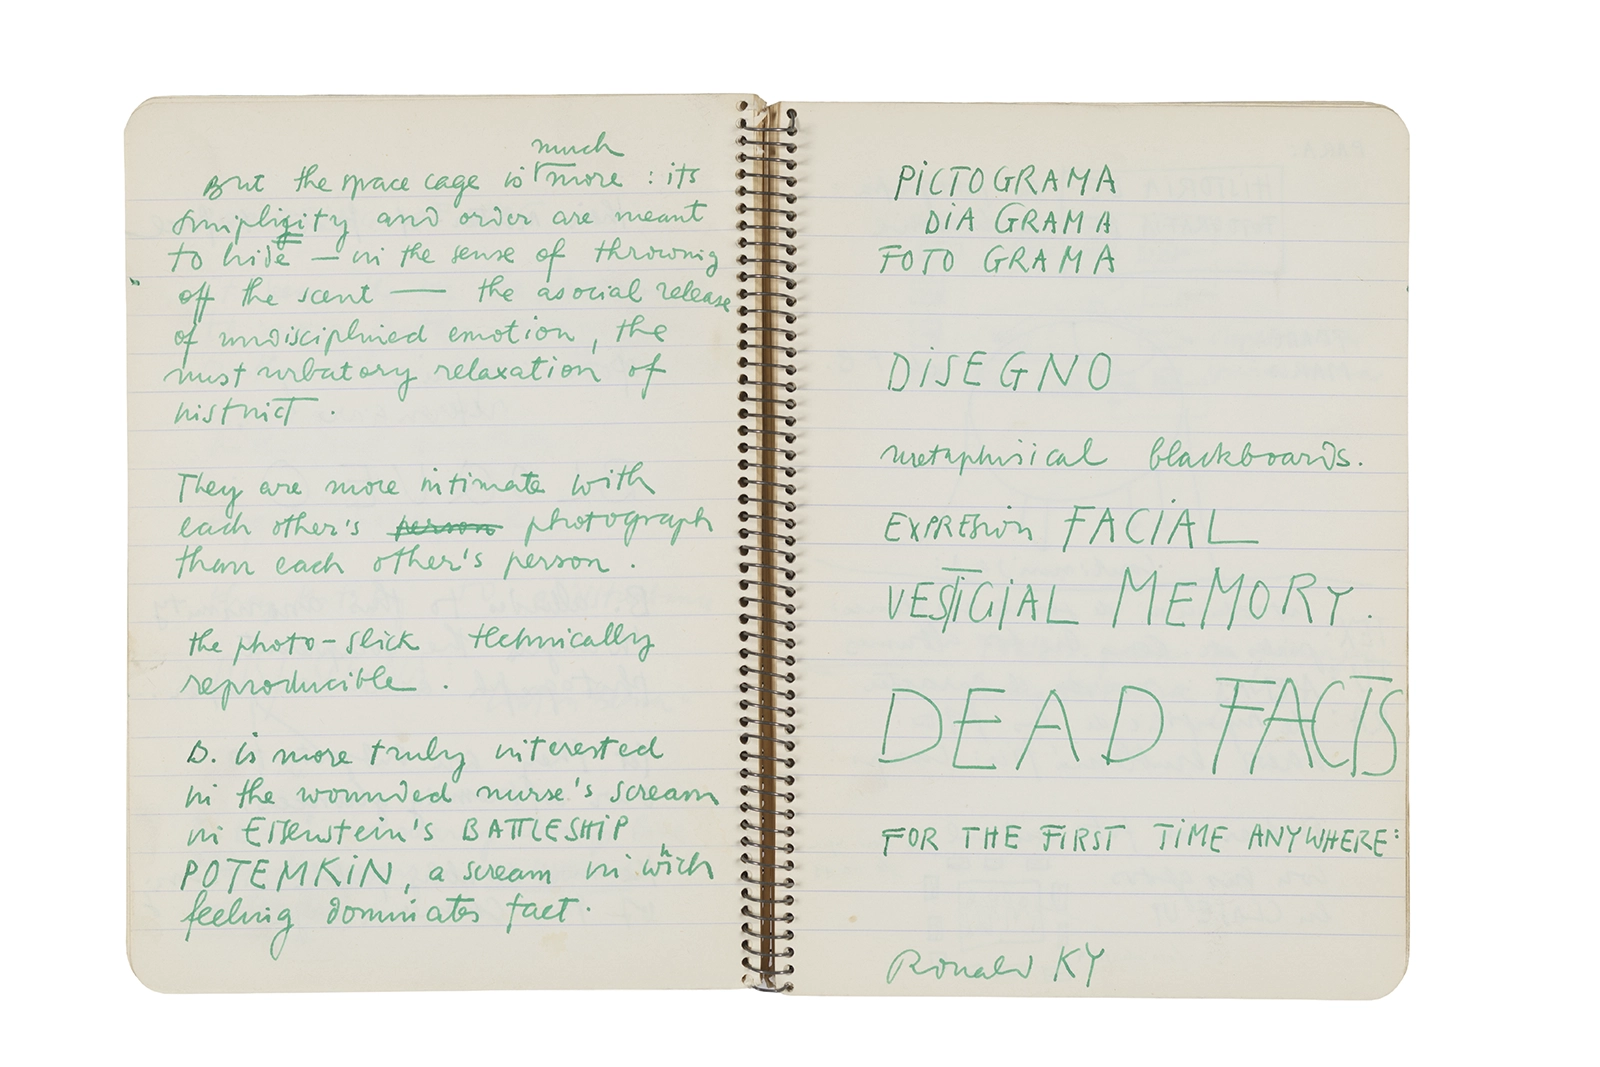 much
But the space cage is more : its
simpligity and order are meant
to hide — in the sense of throwing
off the scent — the asocial release
of undisciplined emotion, the
musturbatory relaxation of
district .
They are more intimate with
each other's person photograph
than each other's person .
the photo-slick technically
reproducible .
D. is more truly interested
in the wounded nurse's scream
in Eisenstein's BATTLESHIP
POTEMKIN, a scream in which
feeling dominates fact.
PICTOGRAMA
DIA GRAMA
FOTO GRAMA
DISEGNO
metaphisical blackboards.
EXPRESION FACIAL
VESTIGIAL MEMORY.
DEAD FACTS
FOR THE FIRST TIME ANYWHERE:
Ronald KY